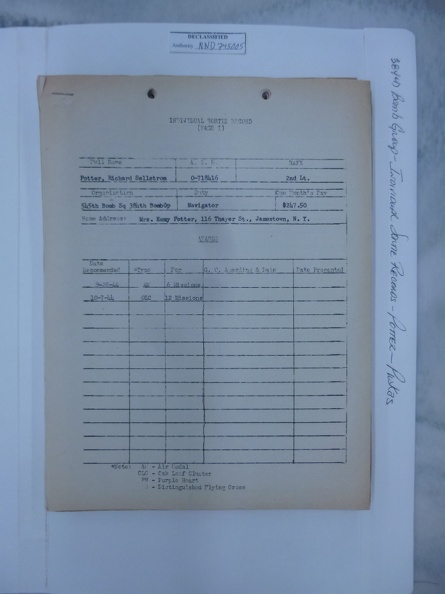 DECLASSIFIED
Authority NND 745005
384th Bomb Group - Individual Sortie Records - Potter - Pruskas
INDIVIDUAL SORTIE RECORD
(PAGE I)
Full Name A.S.N. Rank
Potter, Richard Hellstrom O-718416 2nd Lt.
Organization Duty One Month's Pay
545th Bomb Sq 384th BombGp Navigator $247.50
Home Address: Mrs. Emmy Potter, 118 Thayer St., Jamestown, N. Y.
AWARDS
Date
Recommended *Type For G. O. Awarding & Date Date Presented
AM 6 Missions
10-7-44 OLC 12 Missions
*Note: AM - Air Medal
OLC - Oak Leaf Cluster
PH - Purple Heart
- Distinguished Flying Cross